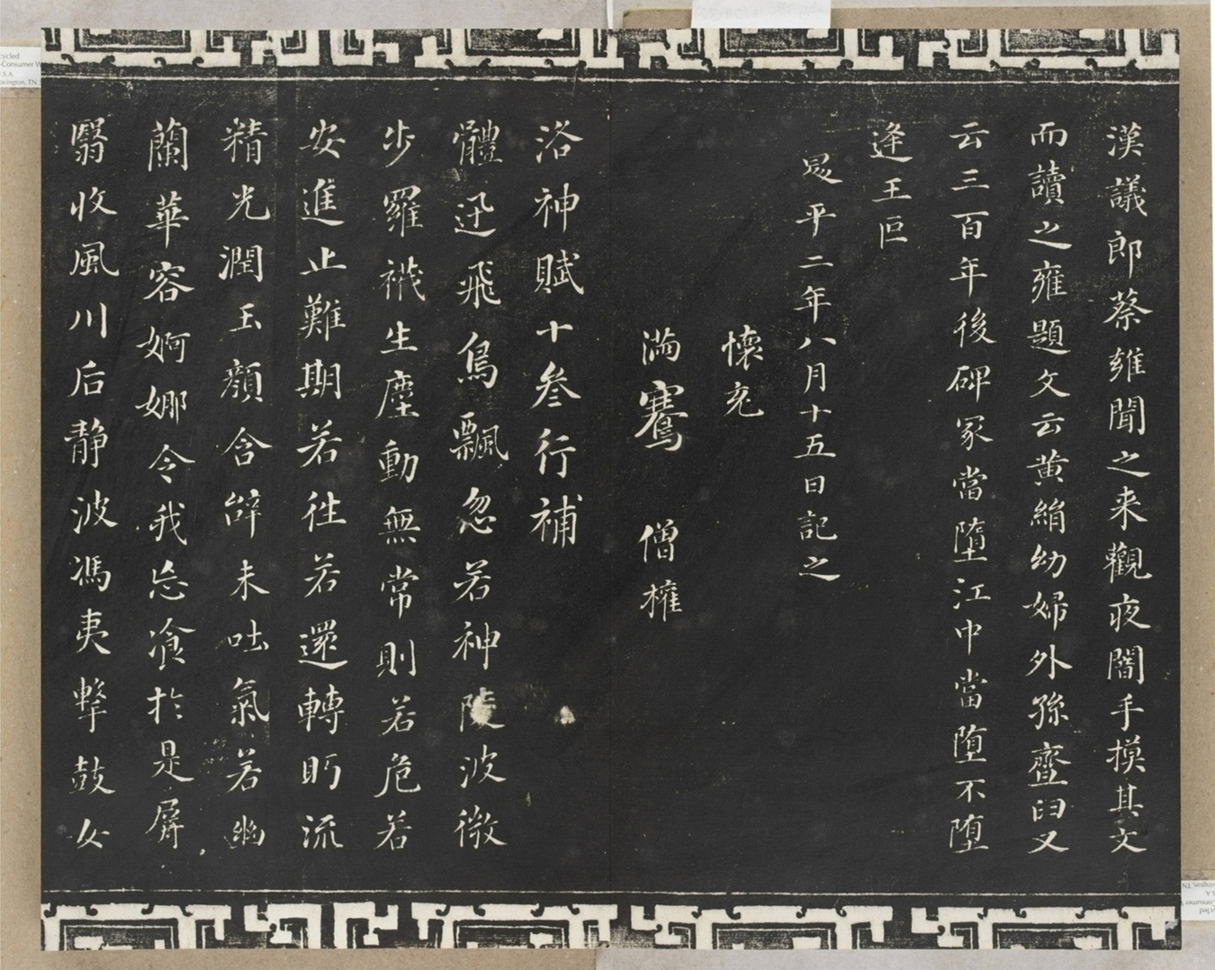 漢議郎蔡雍聞之来觀夜闇手摸其文
而讀之雍題文云黄絹幼婦外孫齏臼又
云三百年後碑冢當墮江中當墮不墮
逢王叵
昇平二年八月十五日記之
懷充
滿騫 僧權
洛神賦十叁行補
體迅飛鳧飄忽若神陵波微
步羅襪生塵動無常則若危若
安進止難期若往若還轉眄流
精光潤玉顏含辭未吐氣若幽
蘭華容婀娜令我忘飡於是屏
翳收風川后静波馮夷擊鼓女